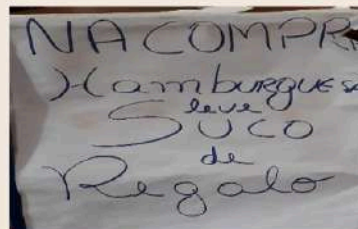 NA COMPR
Hamburguesa
leve
SUCO
de
Regalo